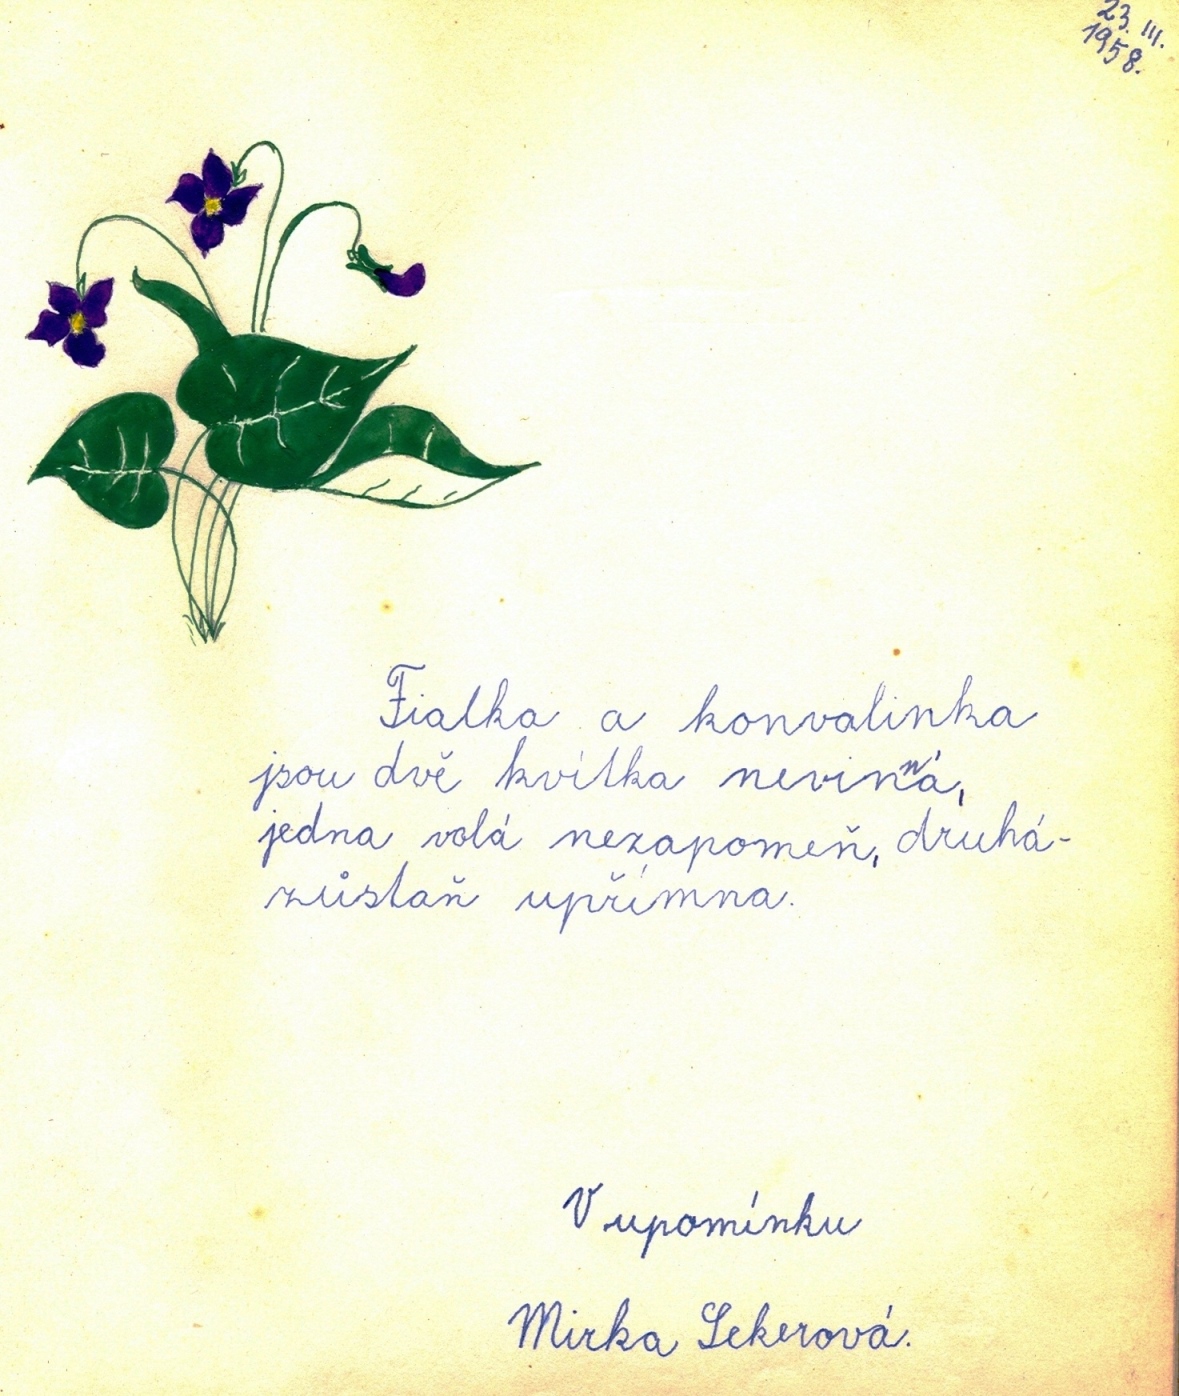 23. III.
1958.
Fialka a konvalinka
jsou dvě kvítka nevinná,
jedna volá nezapomeň, druhá-
zůstaň upřímna.
V upomínku
Mirka Sekerová.